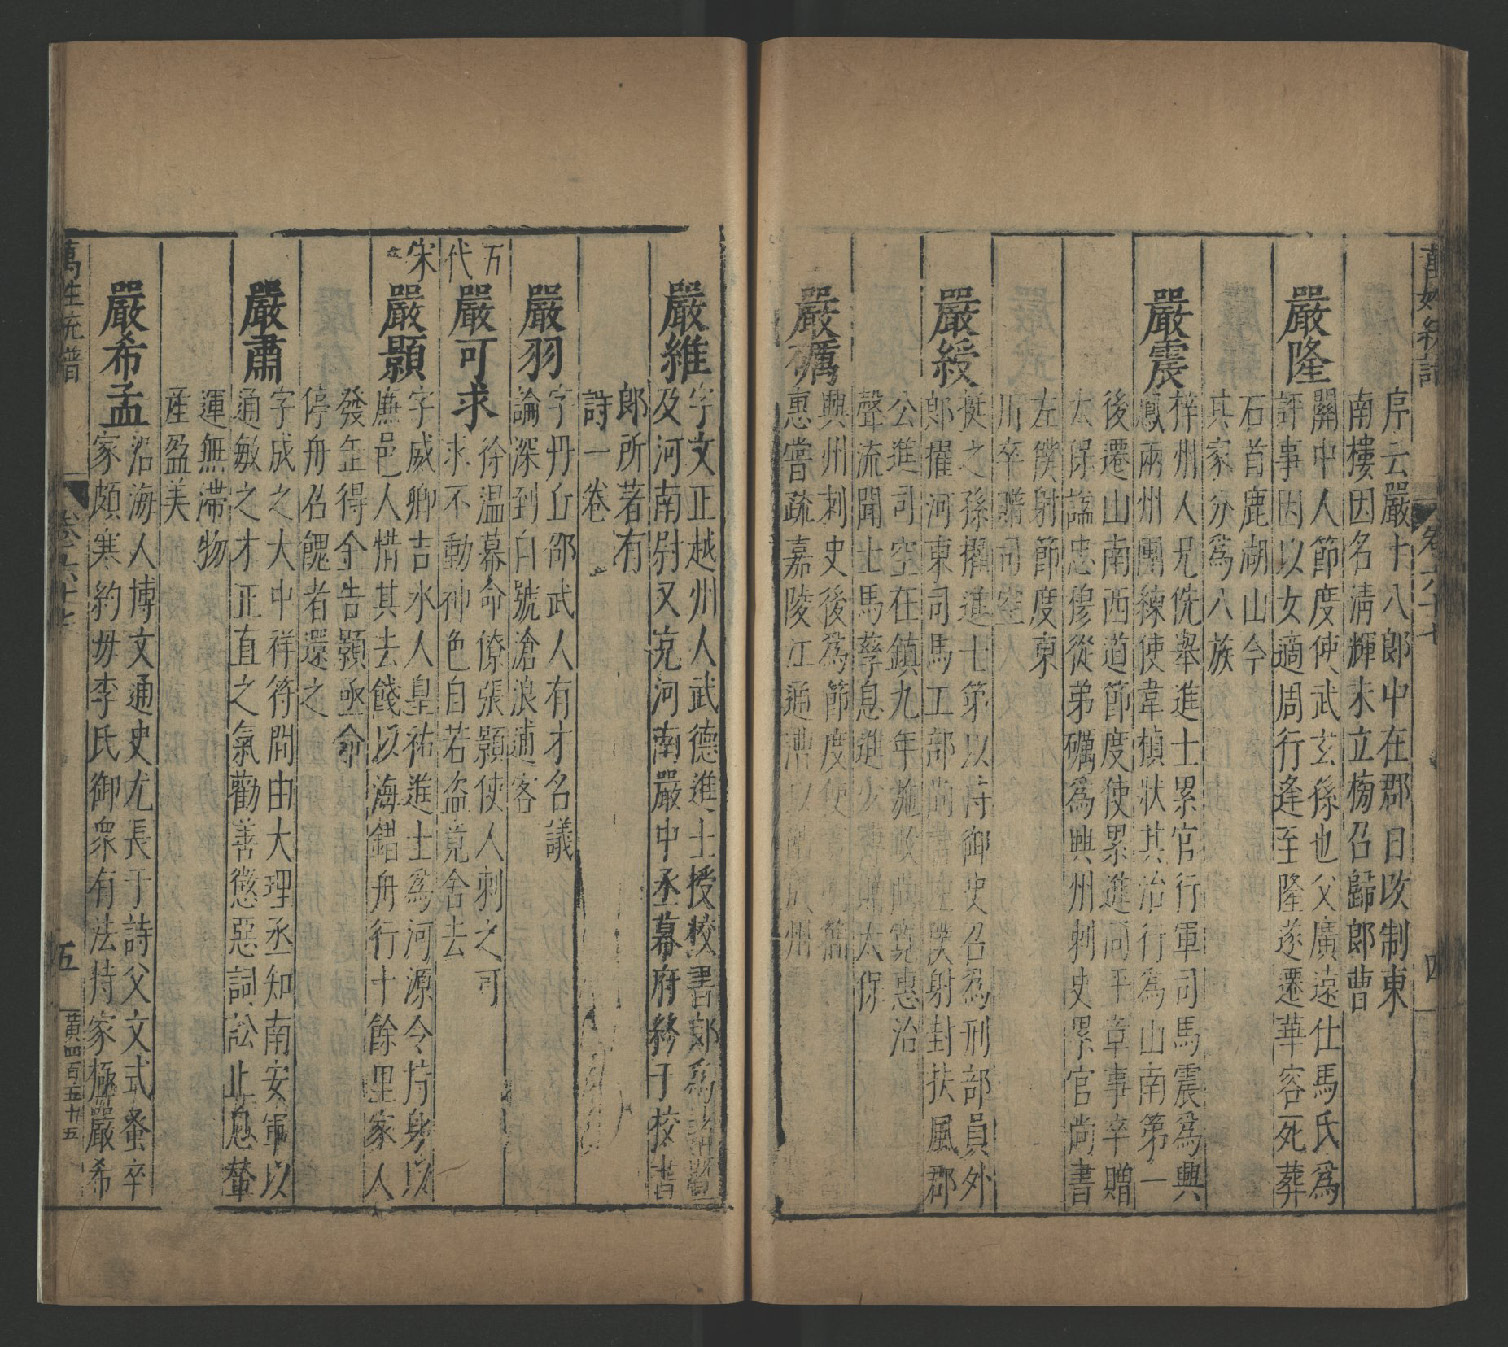 萬姓統譜
卷六十七
四
序云嚴十八郎中在郡日改制東
南樓因名清輝未立榜召歸郎曹
嚴隆
關中人節度使武玄孫也父廣遠仕馬氏爲
評事因以女適周行逢至隆遂遷華容死葬
石首鹿湖山今
其家分爲八族
嚴震
梓州人兄侁舉進士累官行軍司馬震爲興
鳳兩州團練使韋楨狀其治行爲山南第一
後遷山南西道節度使累進同平章事卒贈
太保謚忠僇從弟礪爲興州刺史累官尚書
左僕射節度東
川卒贈司空
嚴綬
挺之孫擢進士第以侍御史召爲刑部員外
郎擢河東司馬工部尚書 僕射封扶風郡
公進司空在鎮九年施政 寬惠治
聲流聞士馬孳息進少 贈太保
嚴礪
興州刺史後爲節度使
惠嘗疏嘉陵江通漕以
嚴維
字文正越州人武德進士授校書郎爲
及河南尉又充河南嚴中丞幕府終于校書
郎所著有
詩一卷
嚴羽
字丹丘邵武人有才名議
論深到自號滄浪逋客
五代
嚴可求
徐温幕命僚張顥使人刺之可
求不動神色自若盗竟舍去
宋
嚴顥
字威卿吉水人皇祐進士爲河源令持身以
廉邑人惜其去餞以海錯舟行十餘里家人
發缶得金告顥亟命
停舟召餽者還之
嚴肅
字成之大中祥符間由大理丞知南安軍以
通敏之才正直之氣勸善懲惡詞訟止息犛
運無滯物
產盈美
嚴希孟
沿海人博文通史尤長于詩父文式蚤卒
家頗寒約毋李氏御衆有法持家極嚴希
萬姓統譜
卷六十七
五
黄四百五十五